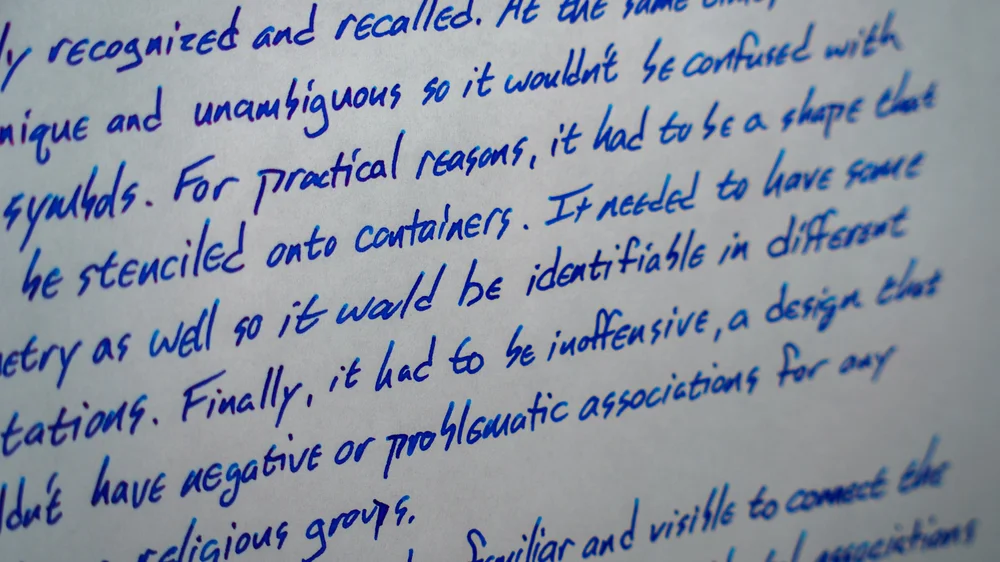 ly recognized and recalled. At the same time,
nique and unambiguous so it wouldn't be confused with
symbols. For practical reasons, it had to be a shape that
be stenciled onto containers. It needed to have some
etry as well so it would be identifiable in different
tations. Finally, it had to be inoffensive, a design that
ldn't have negative or problematic associations for any
religious groups.
familiar and visible to connect the
associations